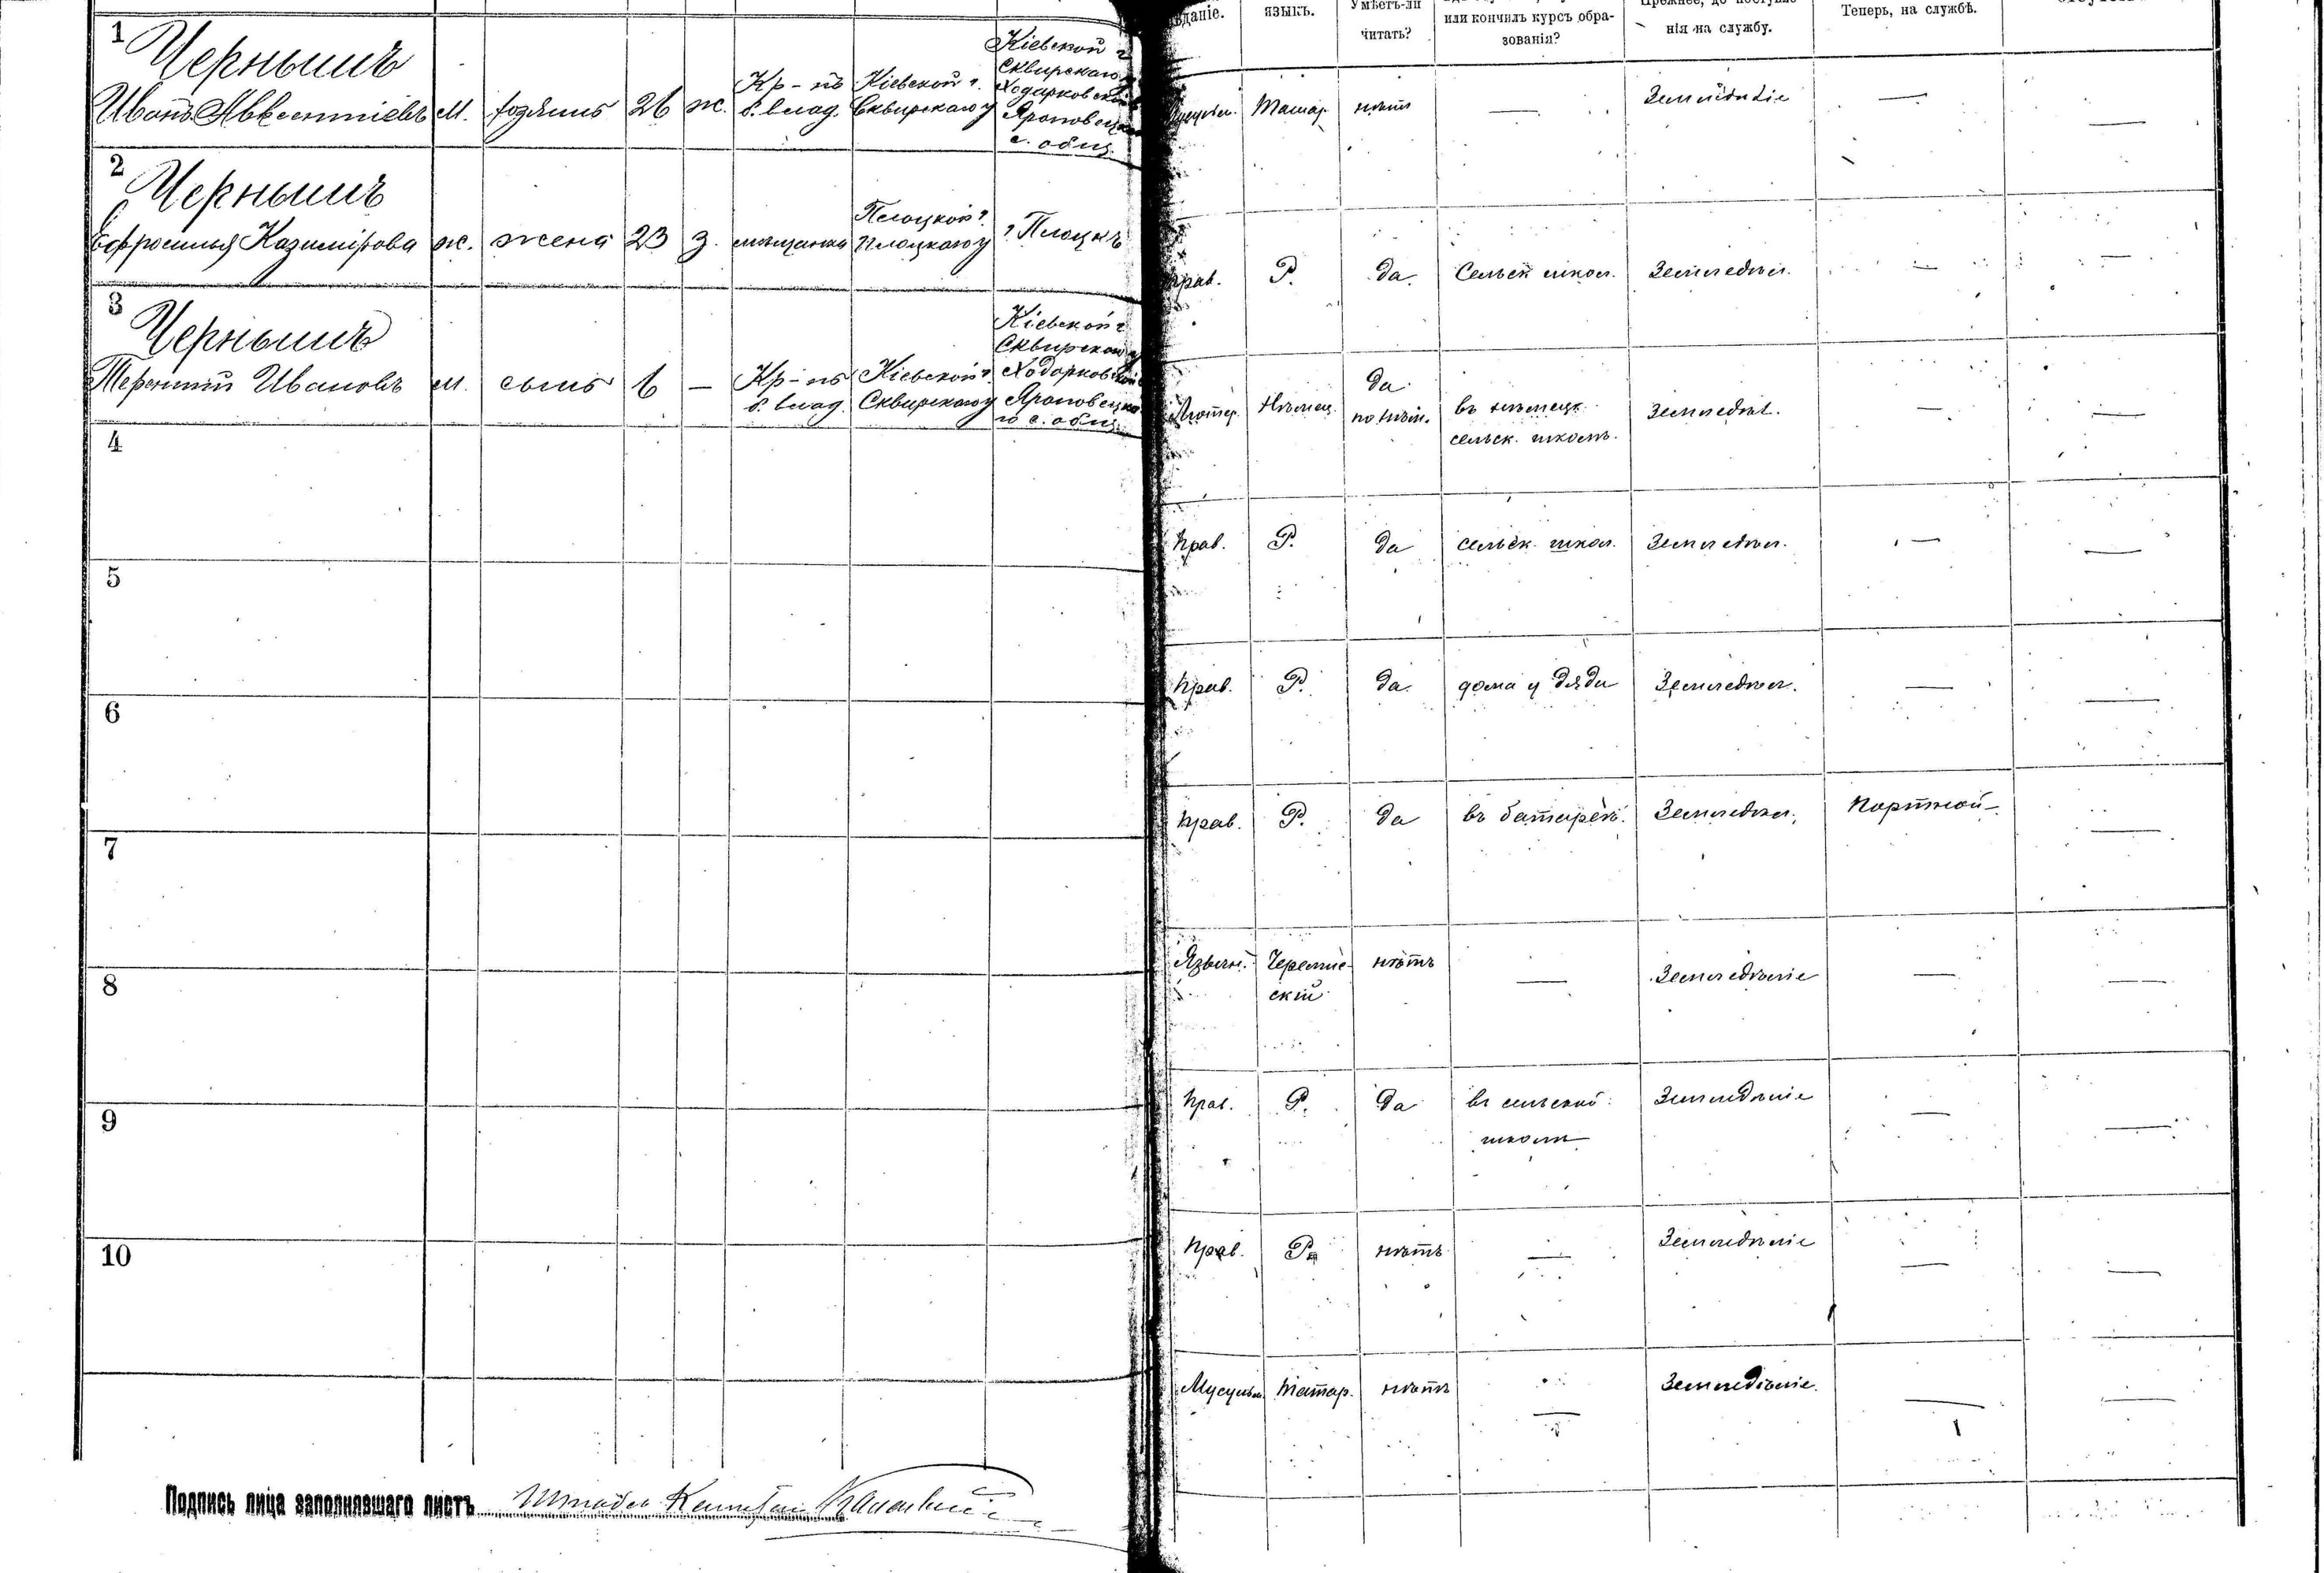 1
Чернышъ
Иванъ Авксентіевъ
м.
хозяинъ
26
ж.
Кр-нъ
б. влад.
Кіевской г.
Сквирскаго у
Кіевской г
Сквирскаго у
Ходорковской
Яроповецка
с. общ.
2
Чернышъ
Ефросинья Казимірова
ж.
жена
23
з.
мѣщанка
Плоцкой г
Плоцкаго у
г Плоцкъ
3
Чернышъ
Терентій Ивановъ
м.
сынъ
1
—
Кр-нъ
б. влад.
Кіевской г.
Сквирскаго у
Кіевской г
Сквирскаго у
Ходорковской
Яроповецка
го с. общ.
4
5
6
7
8
9
10
Подпись лица заполнявшаго листъ
Штабсъ Капитанъ
даніе.
языкъ.
Умѣетъ-ли
читать?
или кончилъ курсъ обра-
зованія?
Прежнее, до поступле-
нія на службу.
Теперь, на службѣ.
Мусульм.
Татар.
нѣтъ
—
Земледѣліе
—
—
Прав.
Р.
да.
Сельск школ.
Земледѣл.
—
—
Лютер.
Нѣмец.
да
по нѣм.
въ нѣмецк.
сельск. школѣ.
Земледѣл.
—
—
Прав.
Р.
да
сельск. школ.
Земледѣл.
—
—
Прав.
Р.
да.
дома у дяди
Земледѣл.
—
—
Прав.
Р.
да
въ батареѣ.
Земледѣл.
Портной
—
Язычн.
Черемис
скій
нѣтъ
—
Земледѣліе
—
—
Прав.
Р.
да
въ сельской
школѣ
Земледѣліе
—
—
Прав.
Р.
нѣтъ
—
Земледѣліе
—
—
Мусульм.
Татар.
нѣтъ
—
Земледѣліе.
—
—